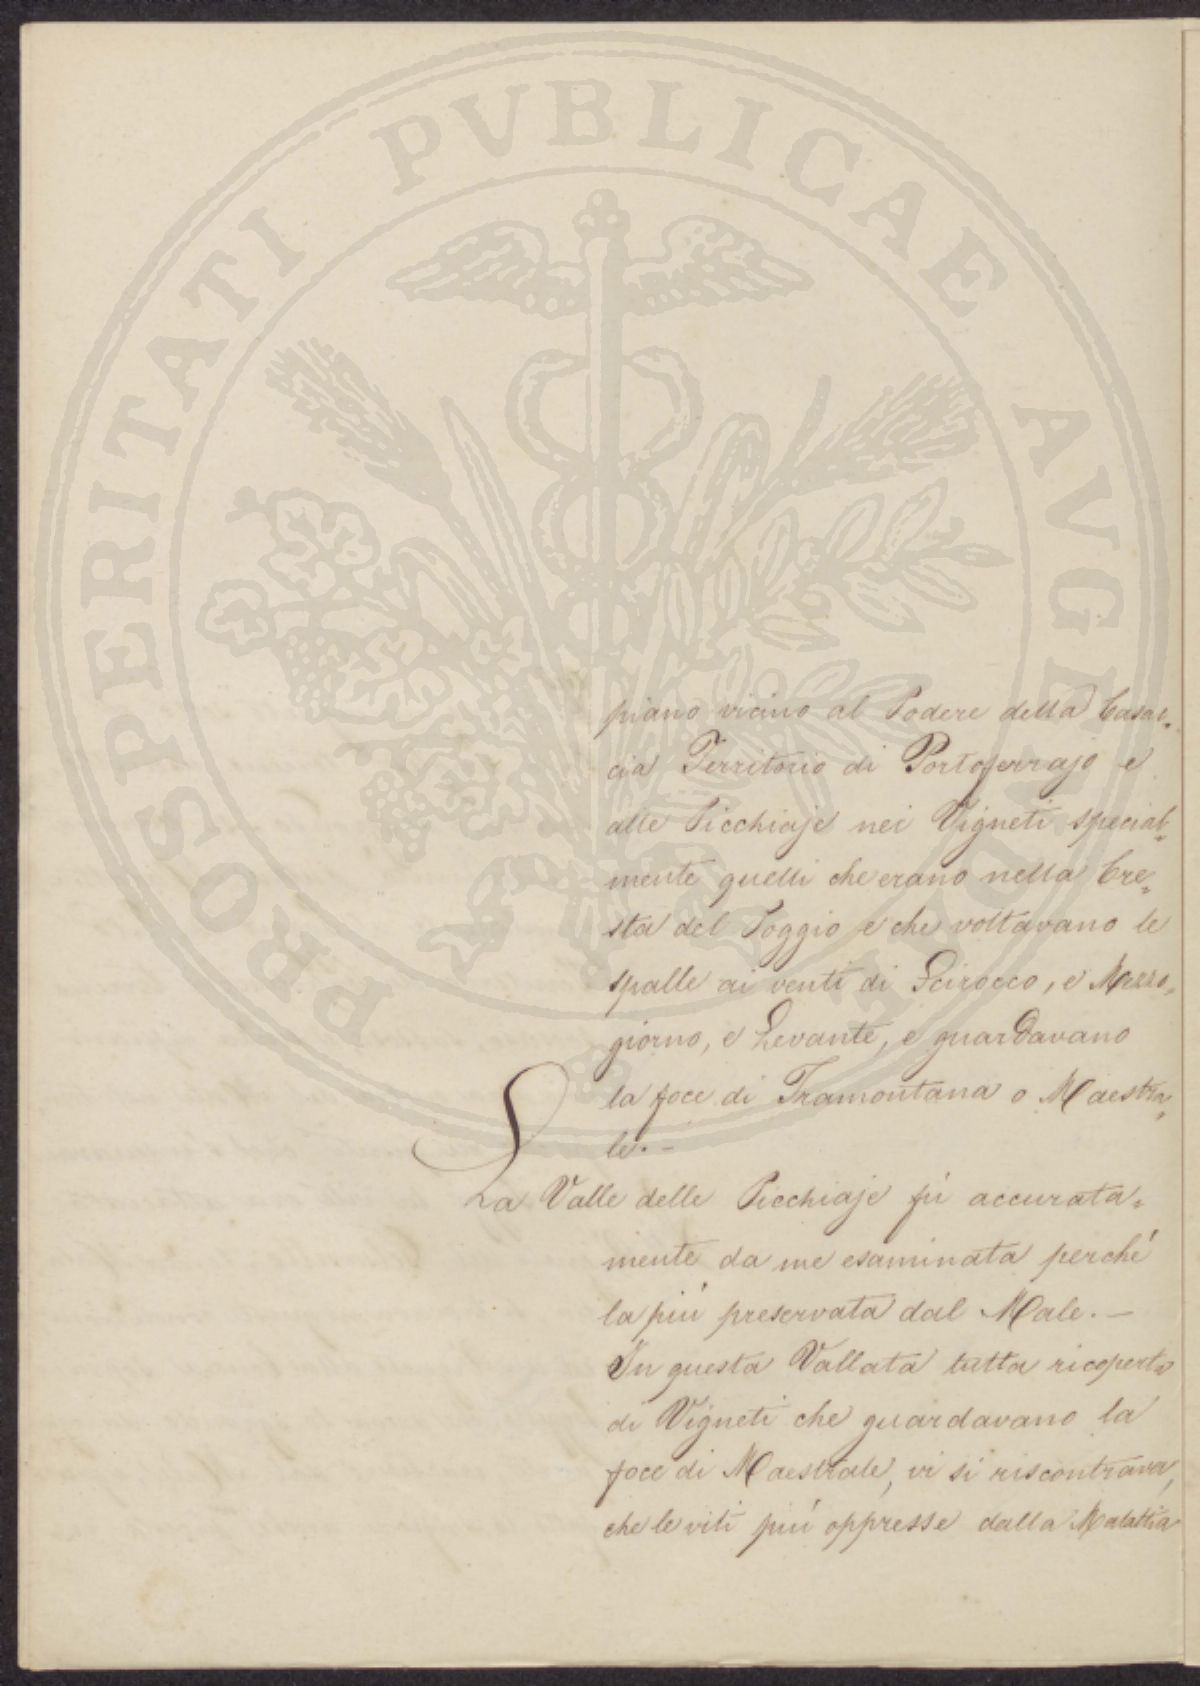 PROSPERITATI PVBLICAE AVGENDAE
piano vicino al Podere della Casac„
cia Territorio di Portoferrajo e
alle Picchiaje nei Vigneti special„
mente quelli che erano nella Cre„
sta del Poggio e che voltavano le
spalle ai venti di Scirocco, e Mezzo„
giorno, e Levante, e guardavano
la foce di Tramontana o Maestra„
le. –
La Valle delle Picchiaje fù accurata„
mente da me esaminata perché
la più preservata dal Male. –
In questa Vallata tutta ricoperta
di Vigneti che guardavano la
foce di Maestrale, vi si riscontrava,
che le viti più oppresse dalla Malattia